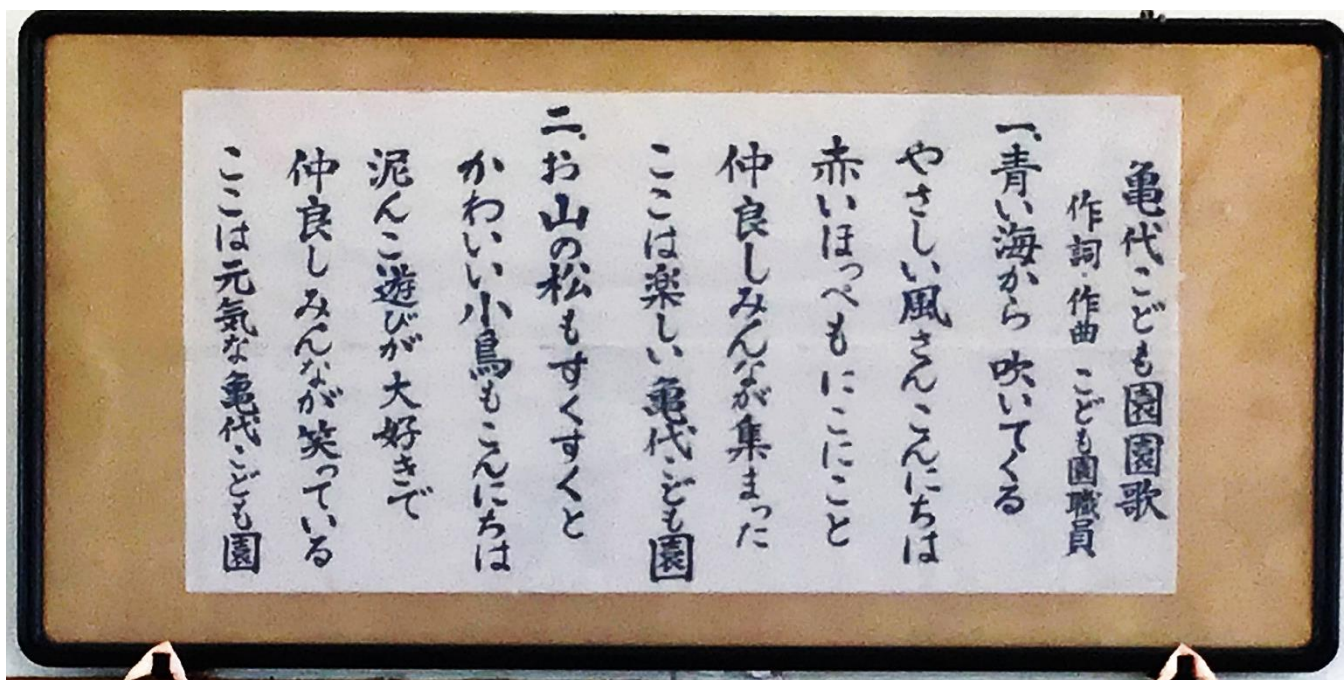 亀代こども園園歌
作詞・作曲 こども園職員
一、青い海から 吹いてくる
やさしい風さんこんにちは
赤いほっぺもにこにこと
仲良しみんなが集まった
ここは楽しい亀代こども園
二、お山の松もすくすくと
かわいい小鳥もこんにちは
泥んこ遊びが大好きで
仲良しみんなが笑っている
ここは元気な亀代こども園